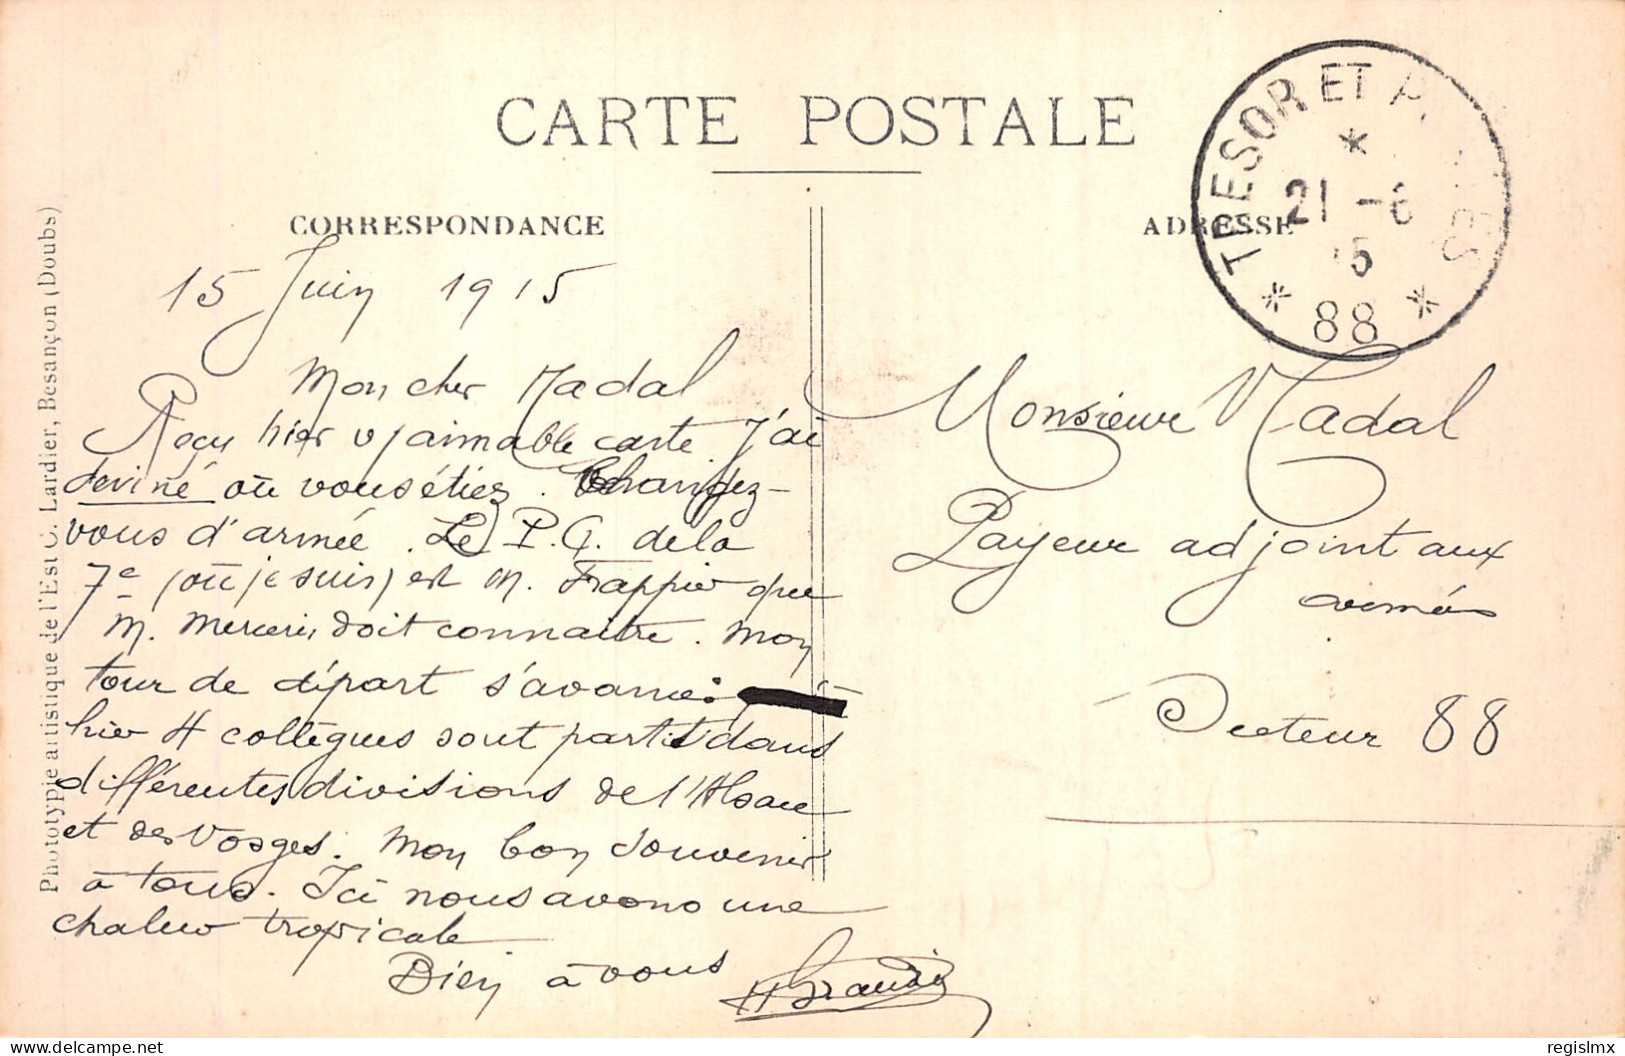 CARTE POSTALE
CORRESPONDANCE
ADRESSE
TRESOR ET
21 - 6
15
* 88 *
15 Juin 1915
Mon cher Nadal
Reçu hier v/aimable carte. J'ai
deviné où vous étiez. Changez-
vous d'armée. Le P.G. de la
7e (où je suis) est M. Frappier que
M. doit connaître. Mon
tour de départ s'avance:
hier 4 collègues sont partis dans
différentes divisions de l'Alsace
et des Vosges. Mon bon souvenir
à tous. Ici nous avons une
chaleur tropicale
Bien à vous
Monsieur Nadal
Payeur adjoint aux
armées
Secteur 88
Phototypie artistique de l'Est C. Lardier, Besançon (Doubs)
delcampe.net
regislmx